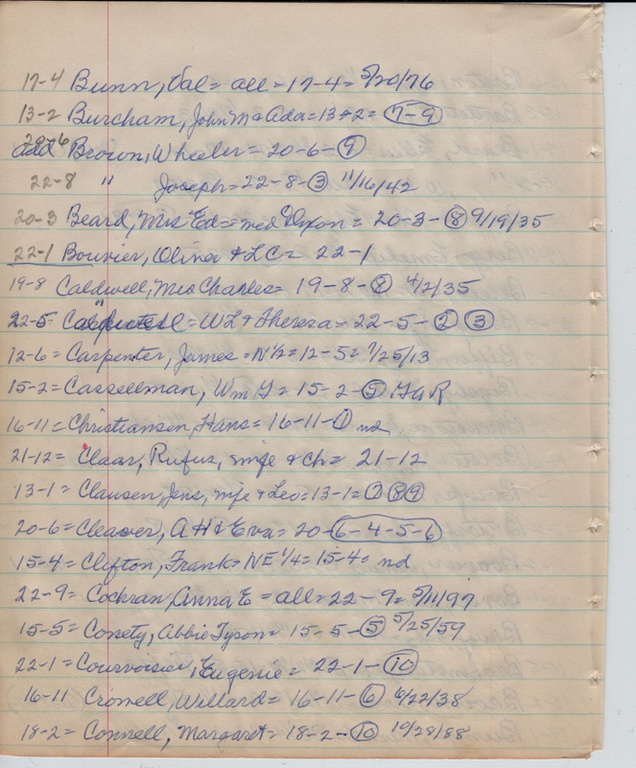 17-4 Bunn, Val = all = 17-4 = 5/20/76
13-2 Burcham, John M & Ada = 13-2 = 7-9
add 20-6 Brown, Wheeler = 20-6-9
22-8 " Joseph = 22-8-3 11/16/42
20-3 Beard, Mrs Ed = med Dixon = 20-3-8 9/19/35
22-1 Bouvier, Oliver & LC = 22-1
19-8 Caldwell, Mrs Charles = 19-8-8 4/2/35
22-5 = " = WL & Theresa = 22-5-2 3
12-6 = Carpenter, James = N1/2 = 12-5 = 7/25/13
15-2 = Cassellman, Wm G = 15-2-5 GAR
16-11 = Christiansen, Hans = 16-11-1 nd
21-12 = Claar, Rufus, wife & ch = 21-12
13-1 = Clausen, Jens, wife & Leo = 13-1 = 7 8 9
20-6 = Cleaver, A H & Eva = 20-6-4-5-6
15-4 = Clifton, Frank = NE 1/4 = 15-4 = nd
22-9 = Cochran, Anna E = all = 22-9 = 5/11/97
15-5 = Conety, Abbie Tyson = 15-5-5 5/25/59
22-1 = Courvoisier, Eugenie = 22-1-10
16-11 Cromell, Willard = 16-11-6 6/22/38
18-2 = Connell, Margaret = 18-2-10 10/28/88